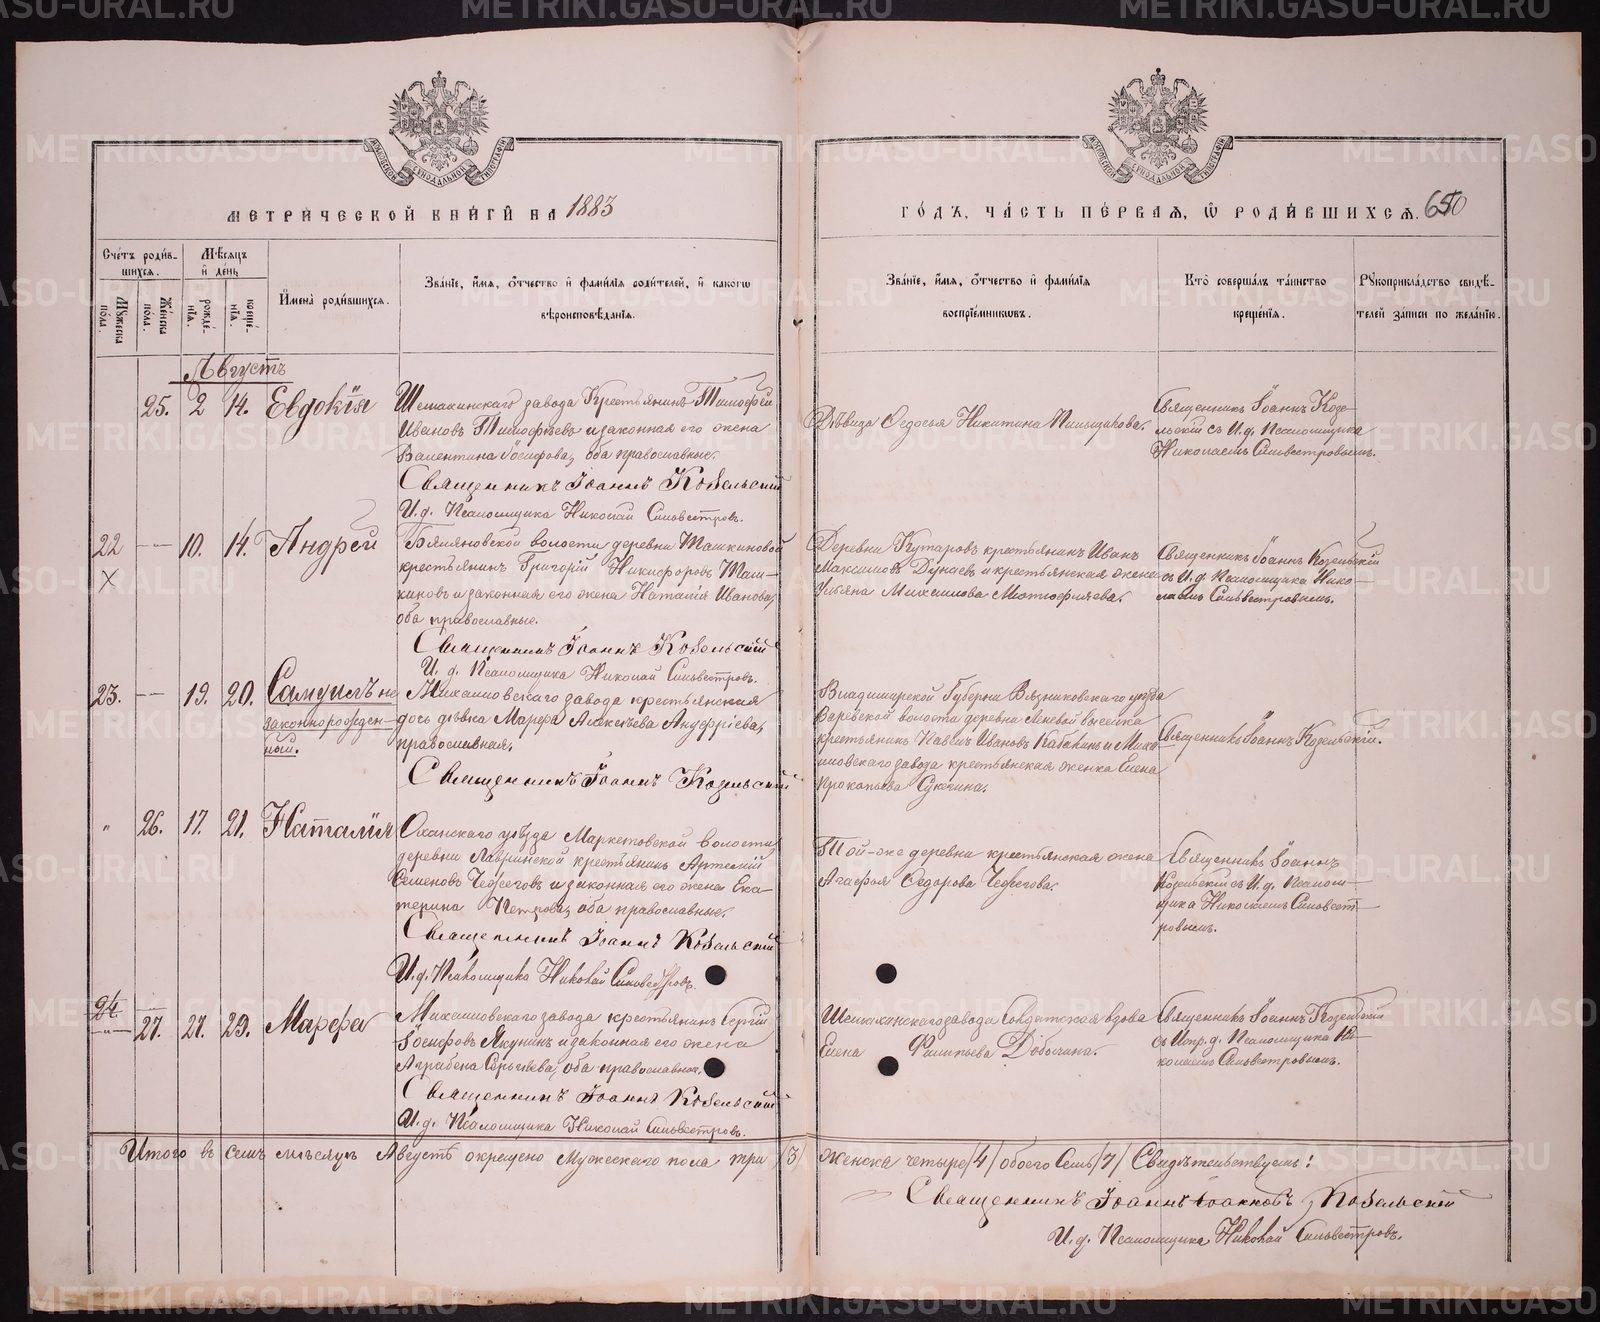 МЕТРИЧЕСКОЙ КНИГИ НА 1883
ГОДЪ, ЧАСТЬ ПЕРВАЯ, Ѡ РОДИВШИХСЯ. 650
Счетъ родив-
шихся.
Мѣсяцъ
и день
Мужеска пола.
Женска пола.
рожде-
нія.
креще-
нія.
Имена родившихся.
Званіе, имя, отчество и фамилія родителей, и какого
вѣроисповѣданія.
Званіе, имя, отчество и фамилія
воспріемниковъ.
Кто совершалъ таинство
крещенія.
Рукоприкладство свидѣ-
телей записи по желанію.
Августъ
25. 2 14. Евдокія
Шемахинскаго завода Крестьянинъ Тимофей
Ивановъ Тимофѣевъ и законная его жена
Валентина Іосифова, оба православные.
Священникъ Іоаннъ Козельскій
И.д. Псаломщика Николай Сильвестровъ.
Дѣвица Ѳедосья Никитина Пильщикова.
Священникъ Іоаннъ Козе-
льскій съ И.д. Псаломщика
Николаемъ Сильвестровымъ.
22 — 10. 14. Андрей
X
волости деревни Ташкиновой
крестьянинъ Григорій Никифоровъ Таш-
киновъ и законная его жена Наталія Иванова,
оба православные.
Священникъ Іоаннъ Козельскій
И.д. Псаломщика Николай Сильвестровъ.
Деревни крестьянинъ Иванъ
Максимовъ Дунаевъ и крестьянская жена
Ульяна Михаилова
Священникъ Іоаннъ Козельскій
съ И.д. Псаломщика Нико-
лаемъ Сильвестровымъ.
23. — 19. 20. Самуилъ не
законнорожден-
ный.
Михаиловскаго завода крестьянская
дочь дѣвка Марфа Алексѣева Ануфріева,
православная.
Священникъ Іоаннъ Козельскій
Владимирской Губерніи Вязниковскаго уѣзда
волости деревни
крестьянинъ Павелъ Ивановъ и Миха-
иловскаго завода крестьянская женка Елена
Прокопьева
Священникъ Іоаннъ Козельскій.
" 26. 17. 21. Наталія
Оханскаго уѣзда Маркетовской волости
деревни Лавринской крестьянинъ Артемій
Семеновъ Чебреговъ и законная его жена Ека-
терина Петрова, оба православные.
Священникъ Іоаннъ Козельскій
И.д. Псаломщика Николай Сильвестровъ.
Той-же деревни крестьянская жена
Агафья Ѳедорова
Священникъ Іоаннъ
Козельскій съ И.д. Псалом-
щика Николаемъ Сильвест-
ровымъ.
24
— 27. 27. 29. Марфа
Михаиловскаго завода крестьянинъ Сергій
Іосифовъ Якунинъ и законная его жена
Аграбена Сергѣева, оба православные.
Священникъ Іоаннъ Козельскій
И.д. Псаломщика Николай Сильвестровъ.
Шемахинскаго завода Солдатская вдова
Елена Филипьева Добычина.
Священникъ Іоаннъ Козельскій
съ Испр.д. Псаломщика Ни-
колаемъ Сильвестровымъ.
Итого въ семъ мѣсяцѣ Августѣ окрещено Мужескаго пола три /3/ женска четыре /4/ обоего Семь /7/ Свидѣтельствуемъ:
Священникъ Іоаннъ Іоанновъ Козельскій
И.д. Псаломщика Николай Сильвестровъ.
METRIKI.GASO-URAL.RU